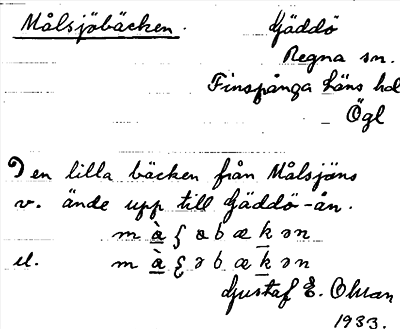 Målsjöbäcken.
Gäddö
Regna sn.
Finspånga läns hd
Ögl
Den lilla bäcken från Målsjöns
v. ände upp till Gäddö-ån.
el.
Gustaf E. Olsson
1933.